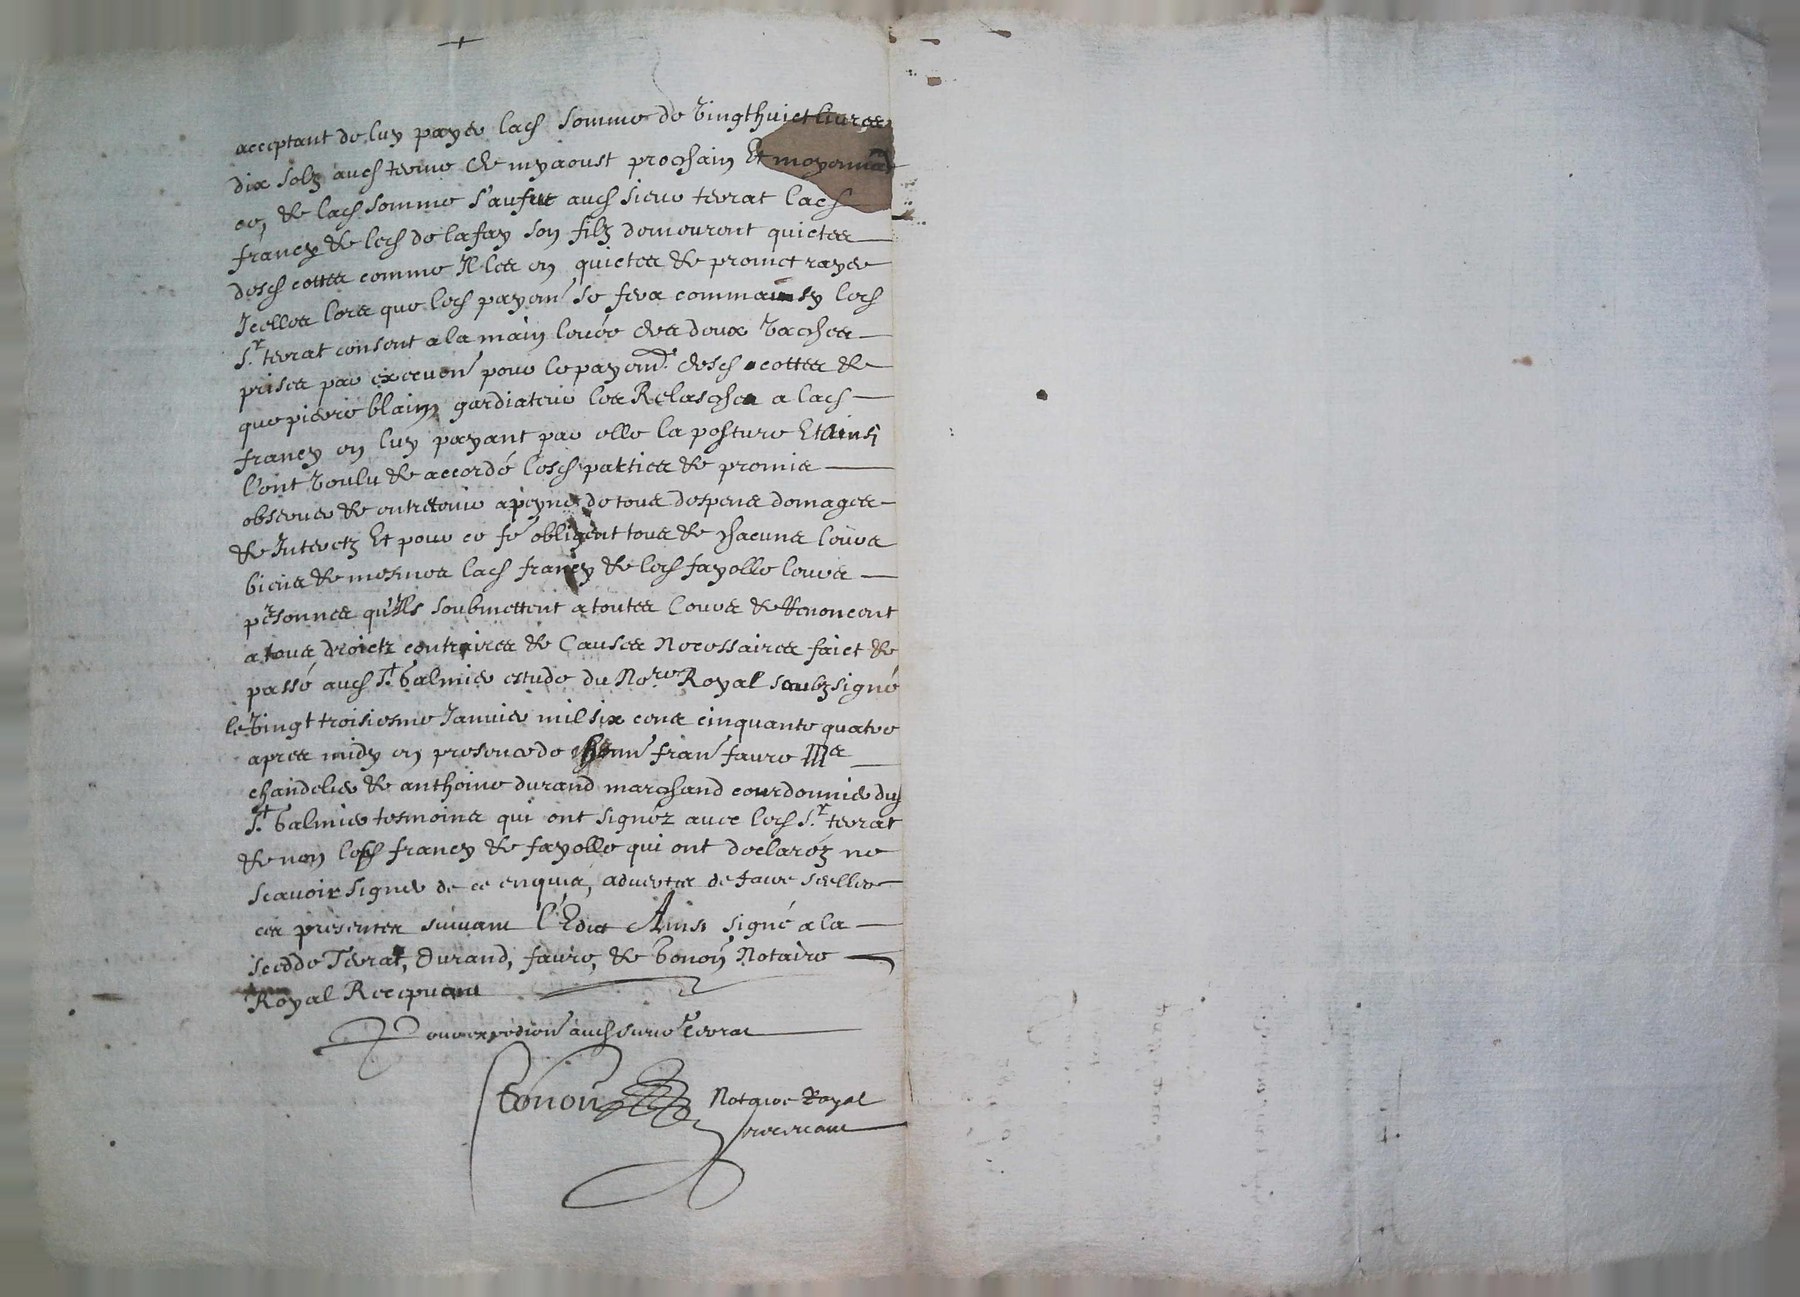 acceptant de luy payer lad somme de vingthuict livres
dix solz aud terme de my aoust prochain Et moyennant
ce, & lad somme sauf aud sieur terrat lad
francy & led de lafay son filz demeuront quictes
desd cottes comme Il les en quictes & promet rayer
Icelles lors que led payem se fera comm ainsy led
Sr. terrat consent a la main levée des deux vaches
prises par execuon pour le payemt. desd cottes &
que pierre blain gardiateur les Relasches a lad
francy en luy payant par elle la posture Et ainsi
l'ont voulu & accordé lesd parties & promis
observer & entretenir a peyne de tous despens domages
& Interetz Et pour ce se obligent tous & chacuns leurs
biens & mesmes lad francy & led fayolle leurs
persones qu'Ils soubmettent a toutes Cours & Renoncent
a tous droictz contraires & Causes Necessaires faict &
passé aud St. Galmier estude du Nore. Royal soubzsigné
le Vingt troisiesme Janvier mil six cens cinquante quatre
apres midy en presence de honn fran faure Me
chandelier & anthoine durand marchand courdonnier dud
St. Galmier tesmoins qui ont signéz avec led Sr. terrat
& non lesd francy & fayolle qui ont declaréz ne
scavoir signer de ce enquis, advertis de faire sceller
ces presentes suivant l'Edict Ainsi signé a la
scedde Terrat, Durand, faure, & Bonon Notaire
Royal Recepvant
Pour expedion aud sieur Terrat
Bonon Notaire Royal
recevant